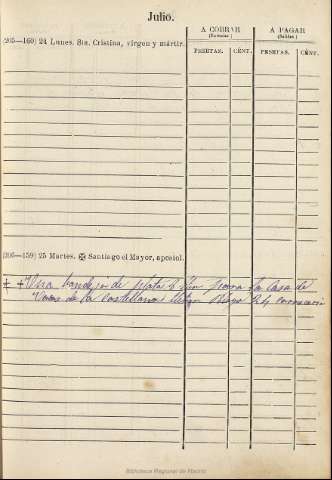 Julio.
A COBRAR
(Entradas)
A PAGAR
(Salidas)
PESETAS. CÉNT. PESETAS. CÉNT.
(205—160) 24 Lunes. Sta. Cristina, virgen y mártir.
(206—159) 25 Martes. ✠ Santiago el Mayor, apóstol.
Una bandeja de plata para la Casa de
de la Castellana 24
Biblioteca Regional de Madrid